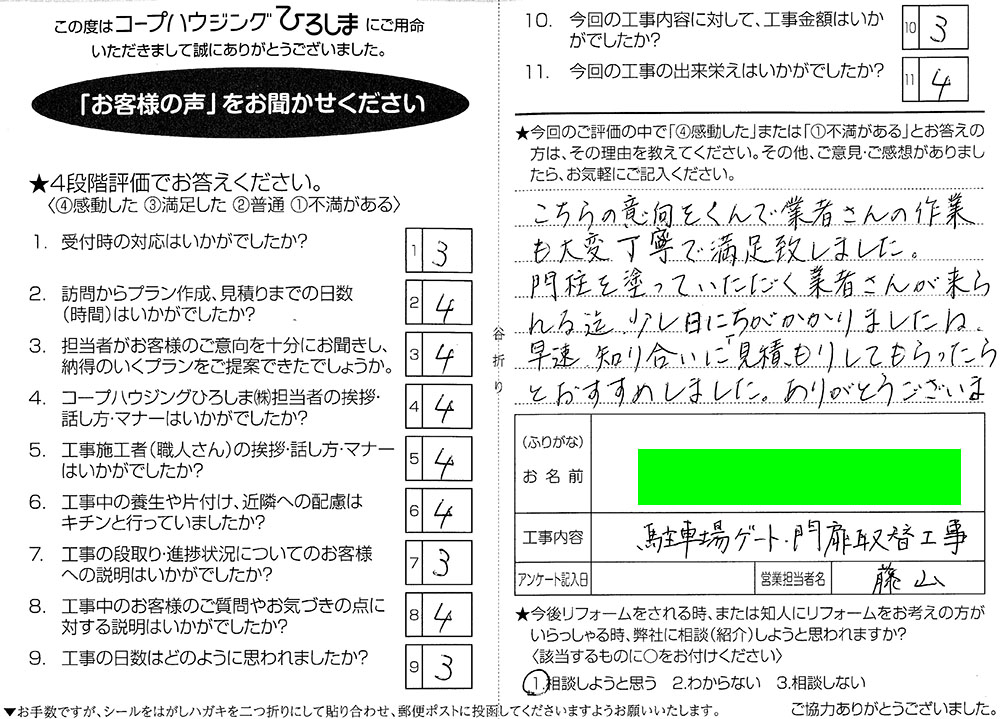 この度はコープハウジングひろしまにご用命
いただきまして誠にありがとうございました。
「お客様の声」をお聞かせください
★4段階評価でお答えください。
〈④感動した ③満足した ②普通 ①不満がある〉
1. 受付時の対応はいかがでしたか?
1 3
2. 訪問からプラン作成、見積りまでの日数
（時間）はいかがでしたか?
2 4
3. 担当者がお客様のご意向を十分にお聞きし、
納得のいくプランをご提案できたでしょうか。
3 4
4. コープハウジングひろしま㈱担当者の挨拶・
話し方・マナーはいかがでしたか?
4 4
5. 工事施工者（職人さん）の挨拶・話し方・マナー
はいかがでしたか?
5 4
6. 工事中の養生や片付け、近隣への配慮は
キチンと行っていましたか?
6 4
7. 工事の段取り・進捗状況についてのお客様
への説明はいかがでしたか?
7 3
8. 工事中のお客様のご質問やお気づきの点に
対する説明はいかがでしたか?
8 4
9. 工事の日数はどのように思われましたか?
9 3
谷折り
10. 今回の工事内容に対して、工事金額はいか
がでしたか?
10 3
11. 今回の工事の出来栄えはいかがでしたか?
11 4
★今回のご評価の中で「④感動した」または「①不満がある」とお答えの
方は、その理由を教えてください。その他、ご意見・ご感想がありまし
たら、お気軽にご記入ください。
こちらの意向をくんで業者さんの作業
も大変丁寧で満足致しました。
門柱を塗っていただく業者さんが来ら
れる迄、少し日にちがかかりましたね。
早速、知り合いに見積もりしてもらったら
とおすすめしました。ありがとうございま
（ふりがな）
お名前
工事内容 駐車場ゲート・門扉取替工事
アンケート記入日 営業担当者名 藤山
★今後リフォームをされる時、または知人にリフォームをお考えの方が
いらっしゃる時、弊社に相談（紹介）しようと思われますか?
〈該当するものに○をお付けください〉
1.相談しようと思う 2.わからない 3.相談しない
▼お手数ですが、シールをはがしハガキを二つ折りにして貼り合わせ、郵便ポストに投函してくださいますようお願いいたします。
ご協力ありがとうございました。